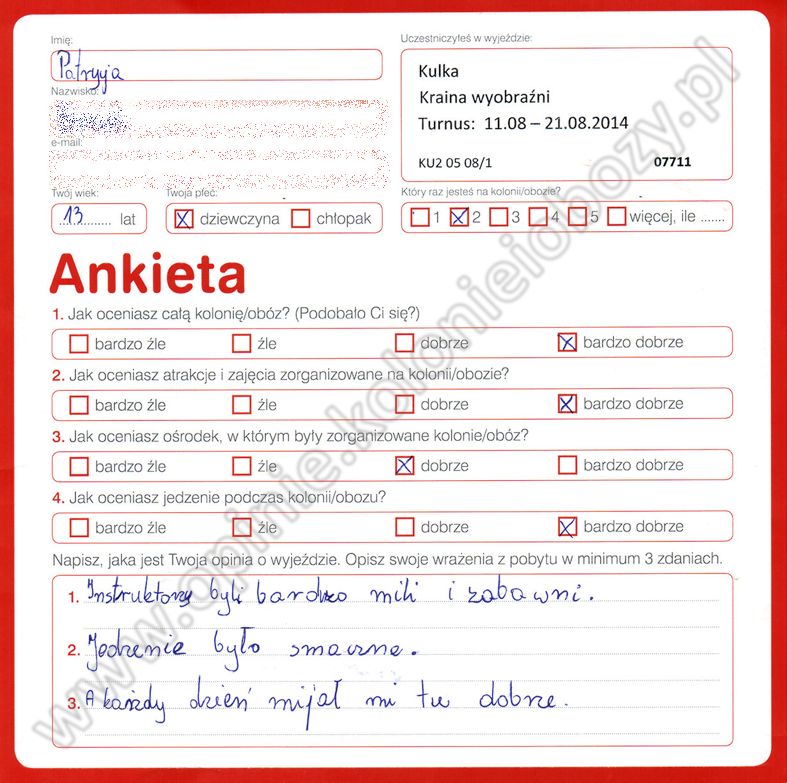 Imię:
Patrycja
Nazwisko:
e-mail:
Twój wiek:
13 lat
Twoja płeć:
dziewczyna chłopak
Uczestniczyłeś w wyjeździe:
Kulka
Kraina wyobraźni
Turnus: 11.08 – 21.08.2014
KU2 05 08/1 07711
Który raz jesteś na kolonii/obozie?
1 2 3 4 5 więcej, ile .......
Ankieta
1. Jak oceniasz całą kolonię/obóz? (Podobało Ci się?)
bardzo źle źle dobrze bardzo dobrze
2. Jak oceniasz atrakcje i zajęcia zorganizowane na kolonii/obozie?
bardzo źle źle dobrze bardzo dobrze
3. Jak oceniasz ośrodek, w którym były zorganizowane kolonie/obóz?
bardzo źle źle dobrze bardzo dobrze
4. Jak oceniasz jedzenie podczas kolonii/obozu?
bardzo źle źle dobrze bardzo dobrze
Napisz, jaka jest Twoja opinia o wyjeździe. Opisz swoje wrażenia z pobytu w minimum 3 zdaniach.
1. Instruktorzy byli bardzo mili i zabawni.
2. Jedzenie było smaczne.
3. A każdy dzień mijał mi tu dobrze.
www.opinie.kolonieiobozy.pl